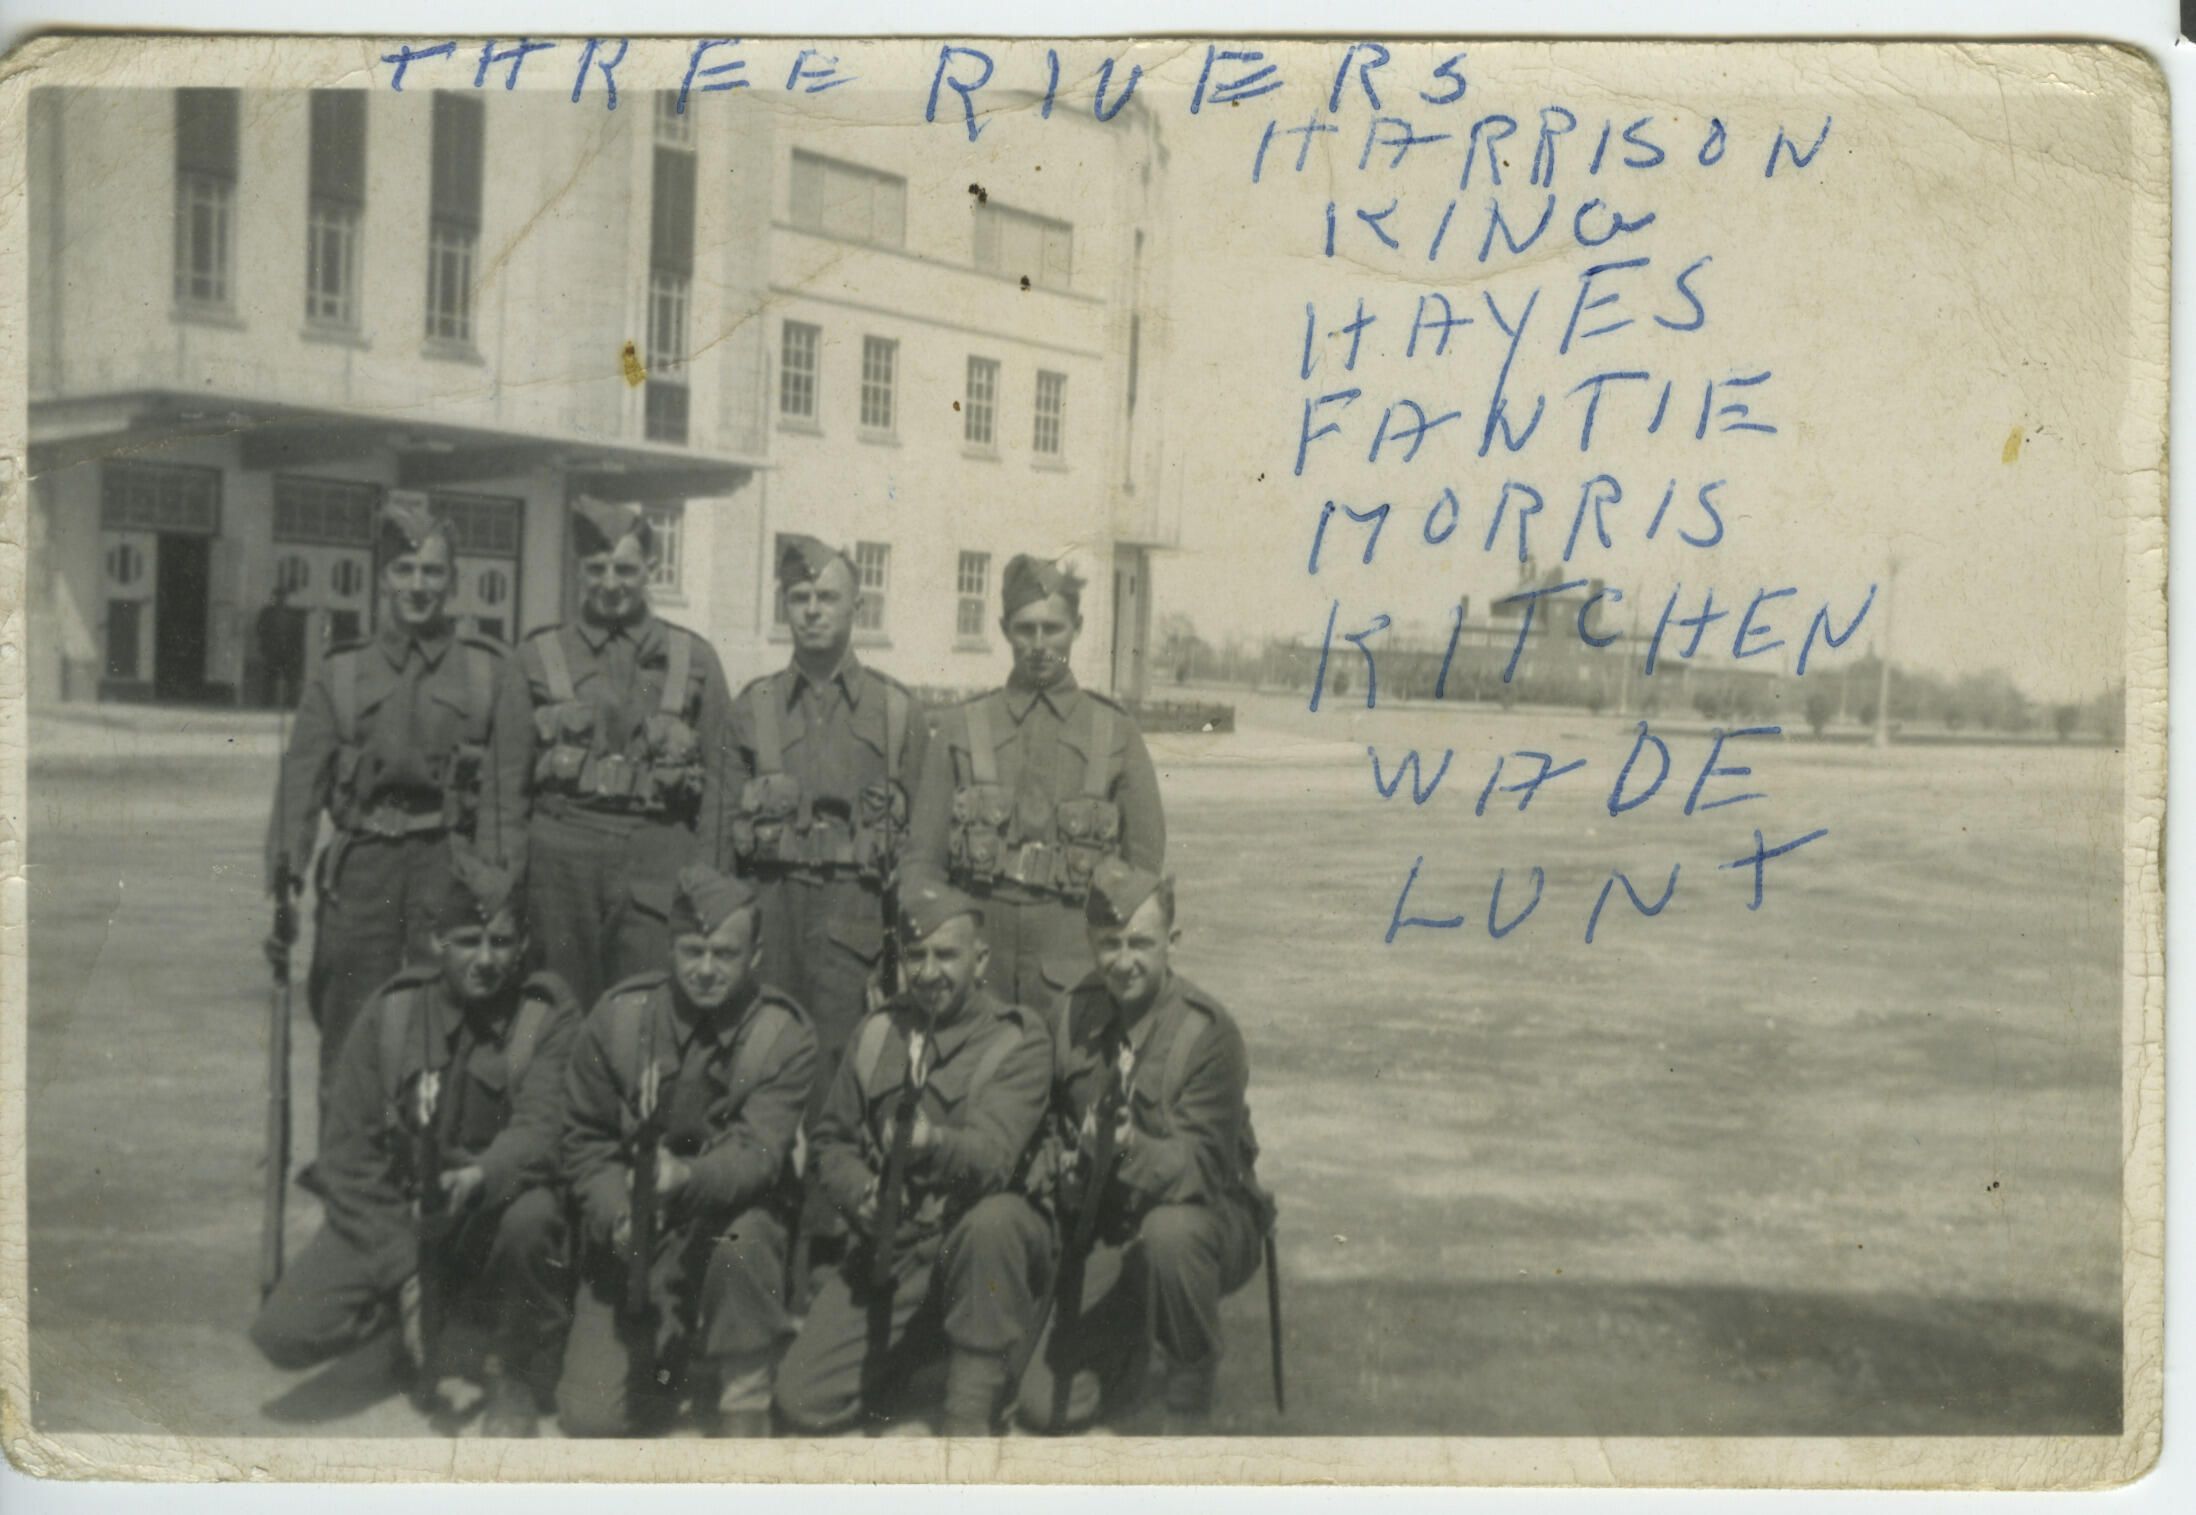 THREE RIVERS
HARRISON
KING
HAYES
FANTIE
MORRIS
KITCHEN
WADE
LUNT